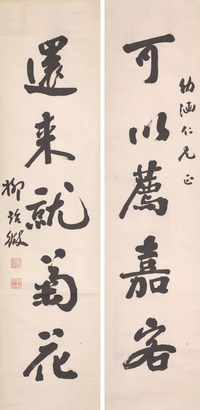 可以薦嘉客
幼涵仁兄正
還来就菊花
柳詒徵